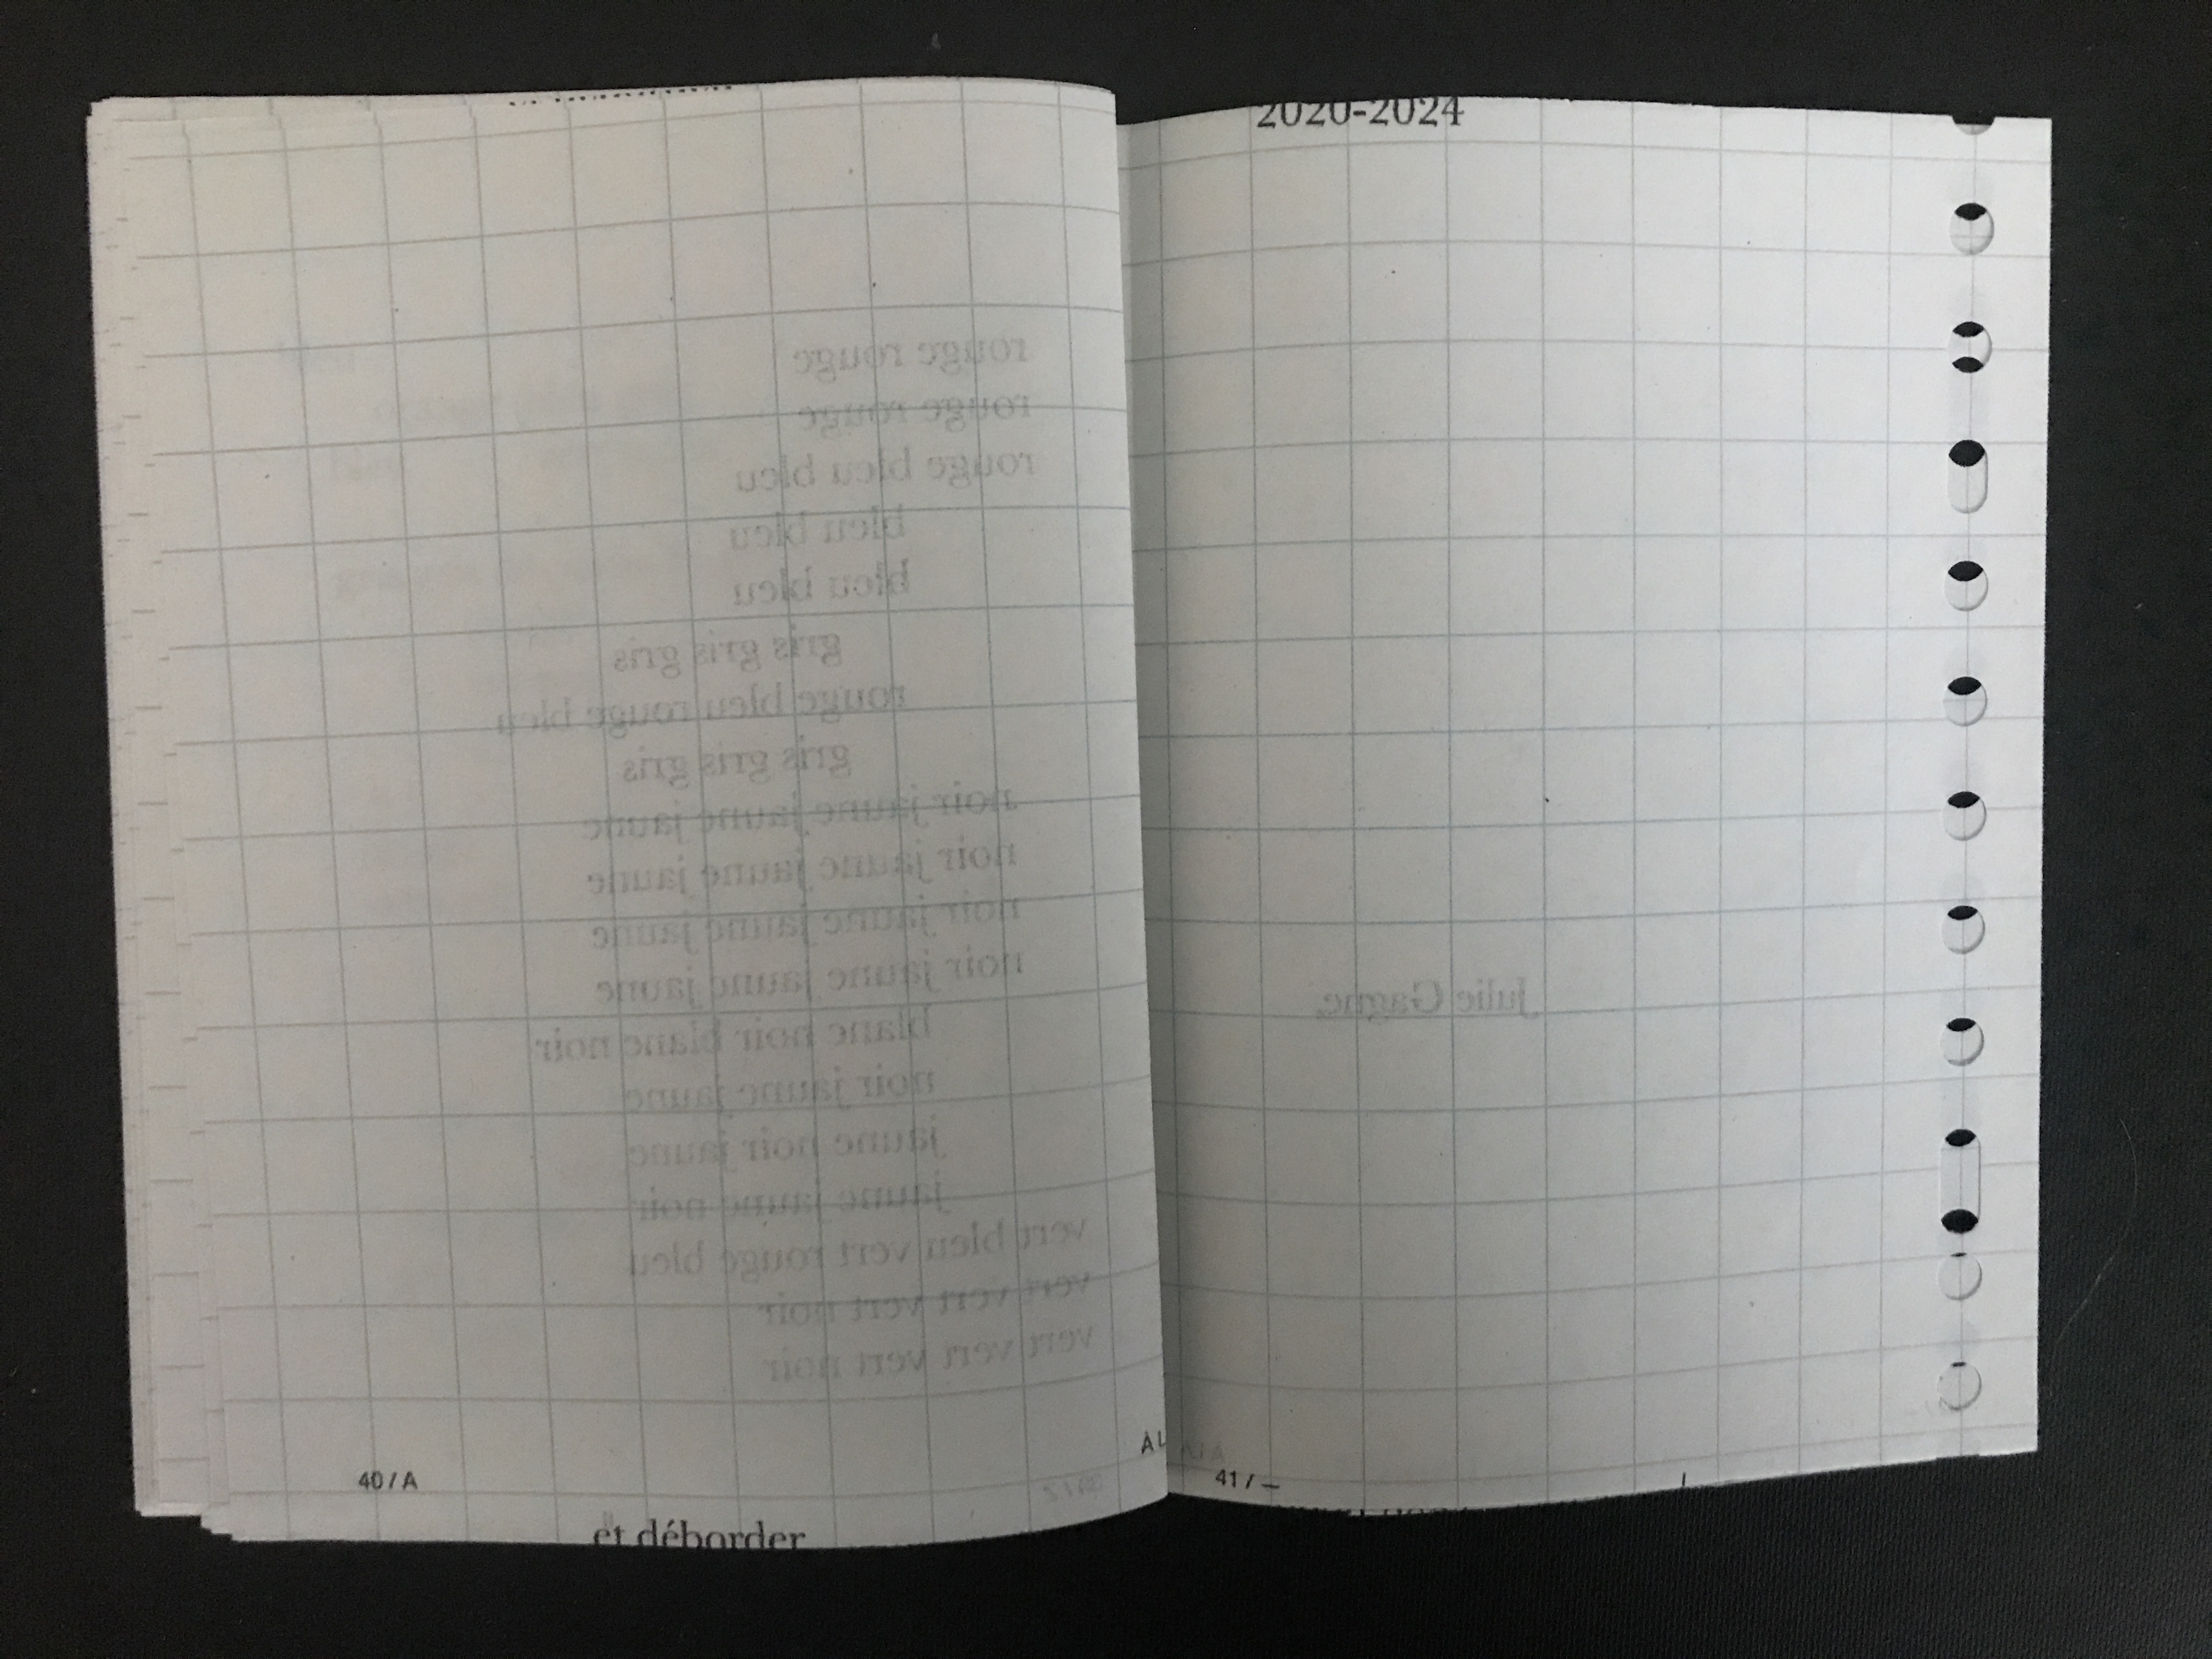 rouge rouge
rouge rouge
rouge bleu bleu
bleu bleu
bleu bleu
gris gris gris
rouge bleu rouge bleu
gris gris gris
noir jaune jaune jaune
noir jaune jaune jaune
noir jaune jaune jaune
noir jaune jaune jaune
blanc noir blanc noir
noir jaune jaune
jaune noir jaune
jaune jaune noir
vert bleu vert rouge bleu
vert vert vert noir
vert vert vert noir
40 / A
et déborder
2020-2024
Julie Gagne,
41 / –